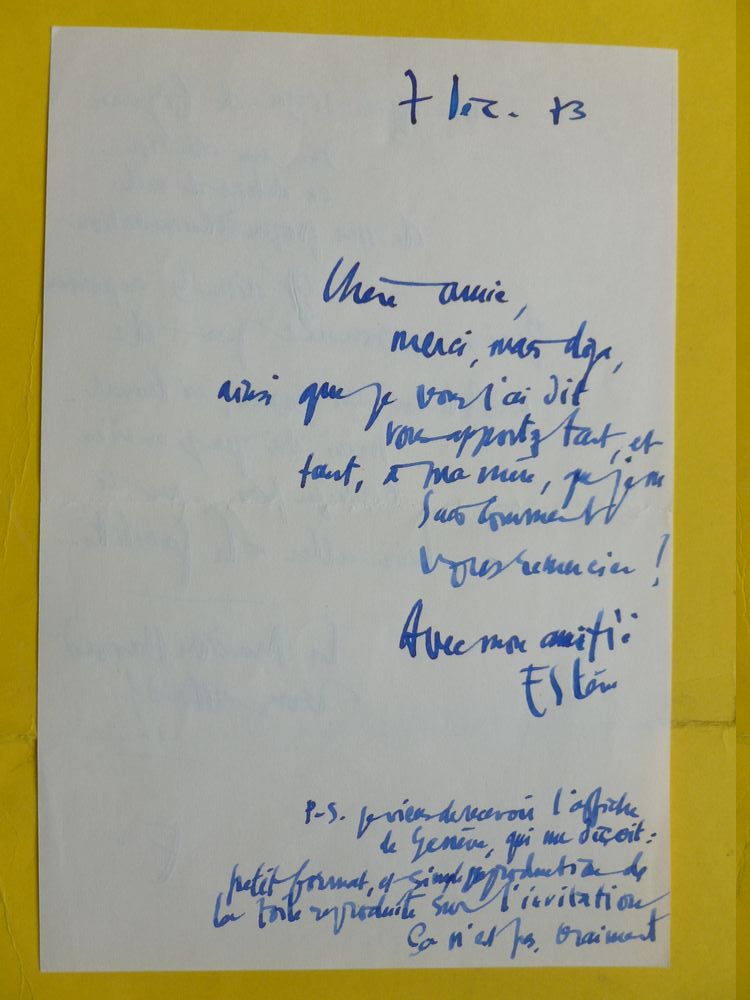 7 déc. 83
Chère amie,
merci, mais déjà,
ainsi que je vous l'ai dit
vous apportez tant, et
tant, à ma mère, que je ne
sais comment
vous remercier !
Avec mon amitié
P-S. je viens de recevoir l'affiche
de Genève, qui me déçoit :
petit format, et simple reproduction de
la toile reproduite sur l'invitation
Ça n'est pas, vraiment